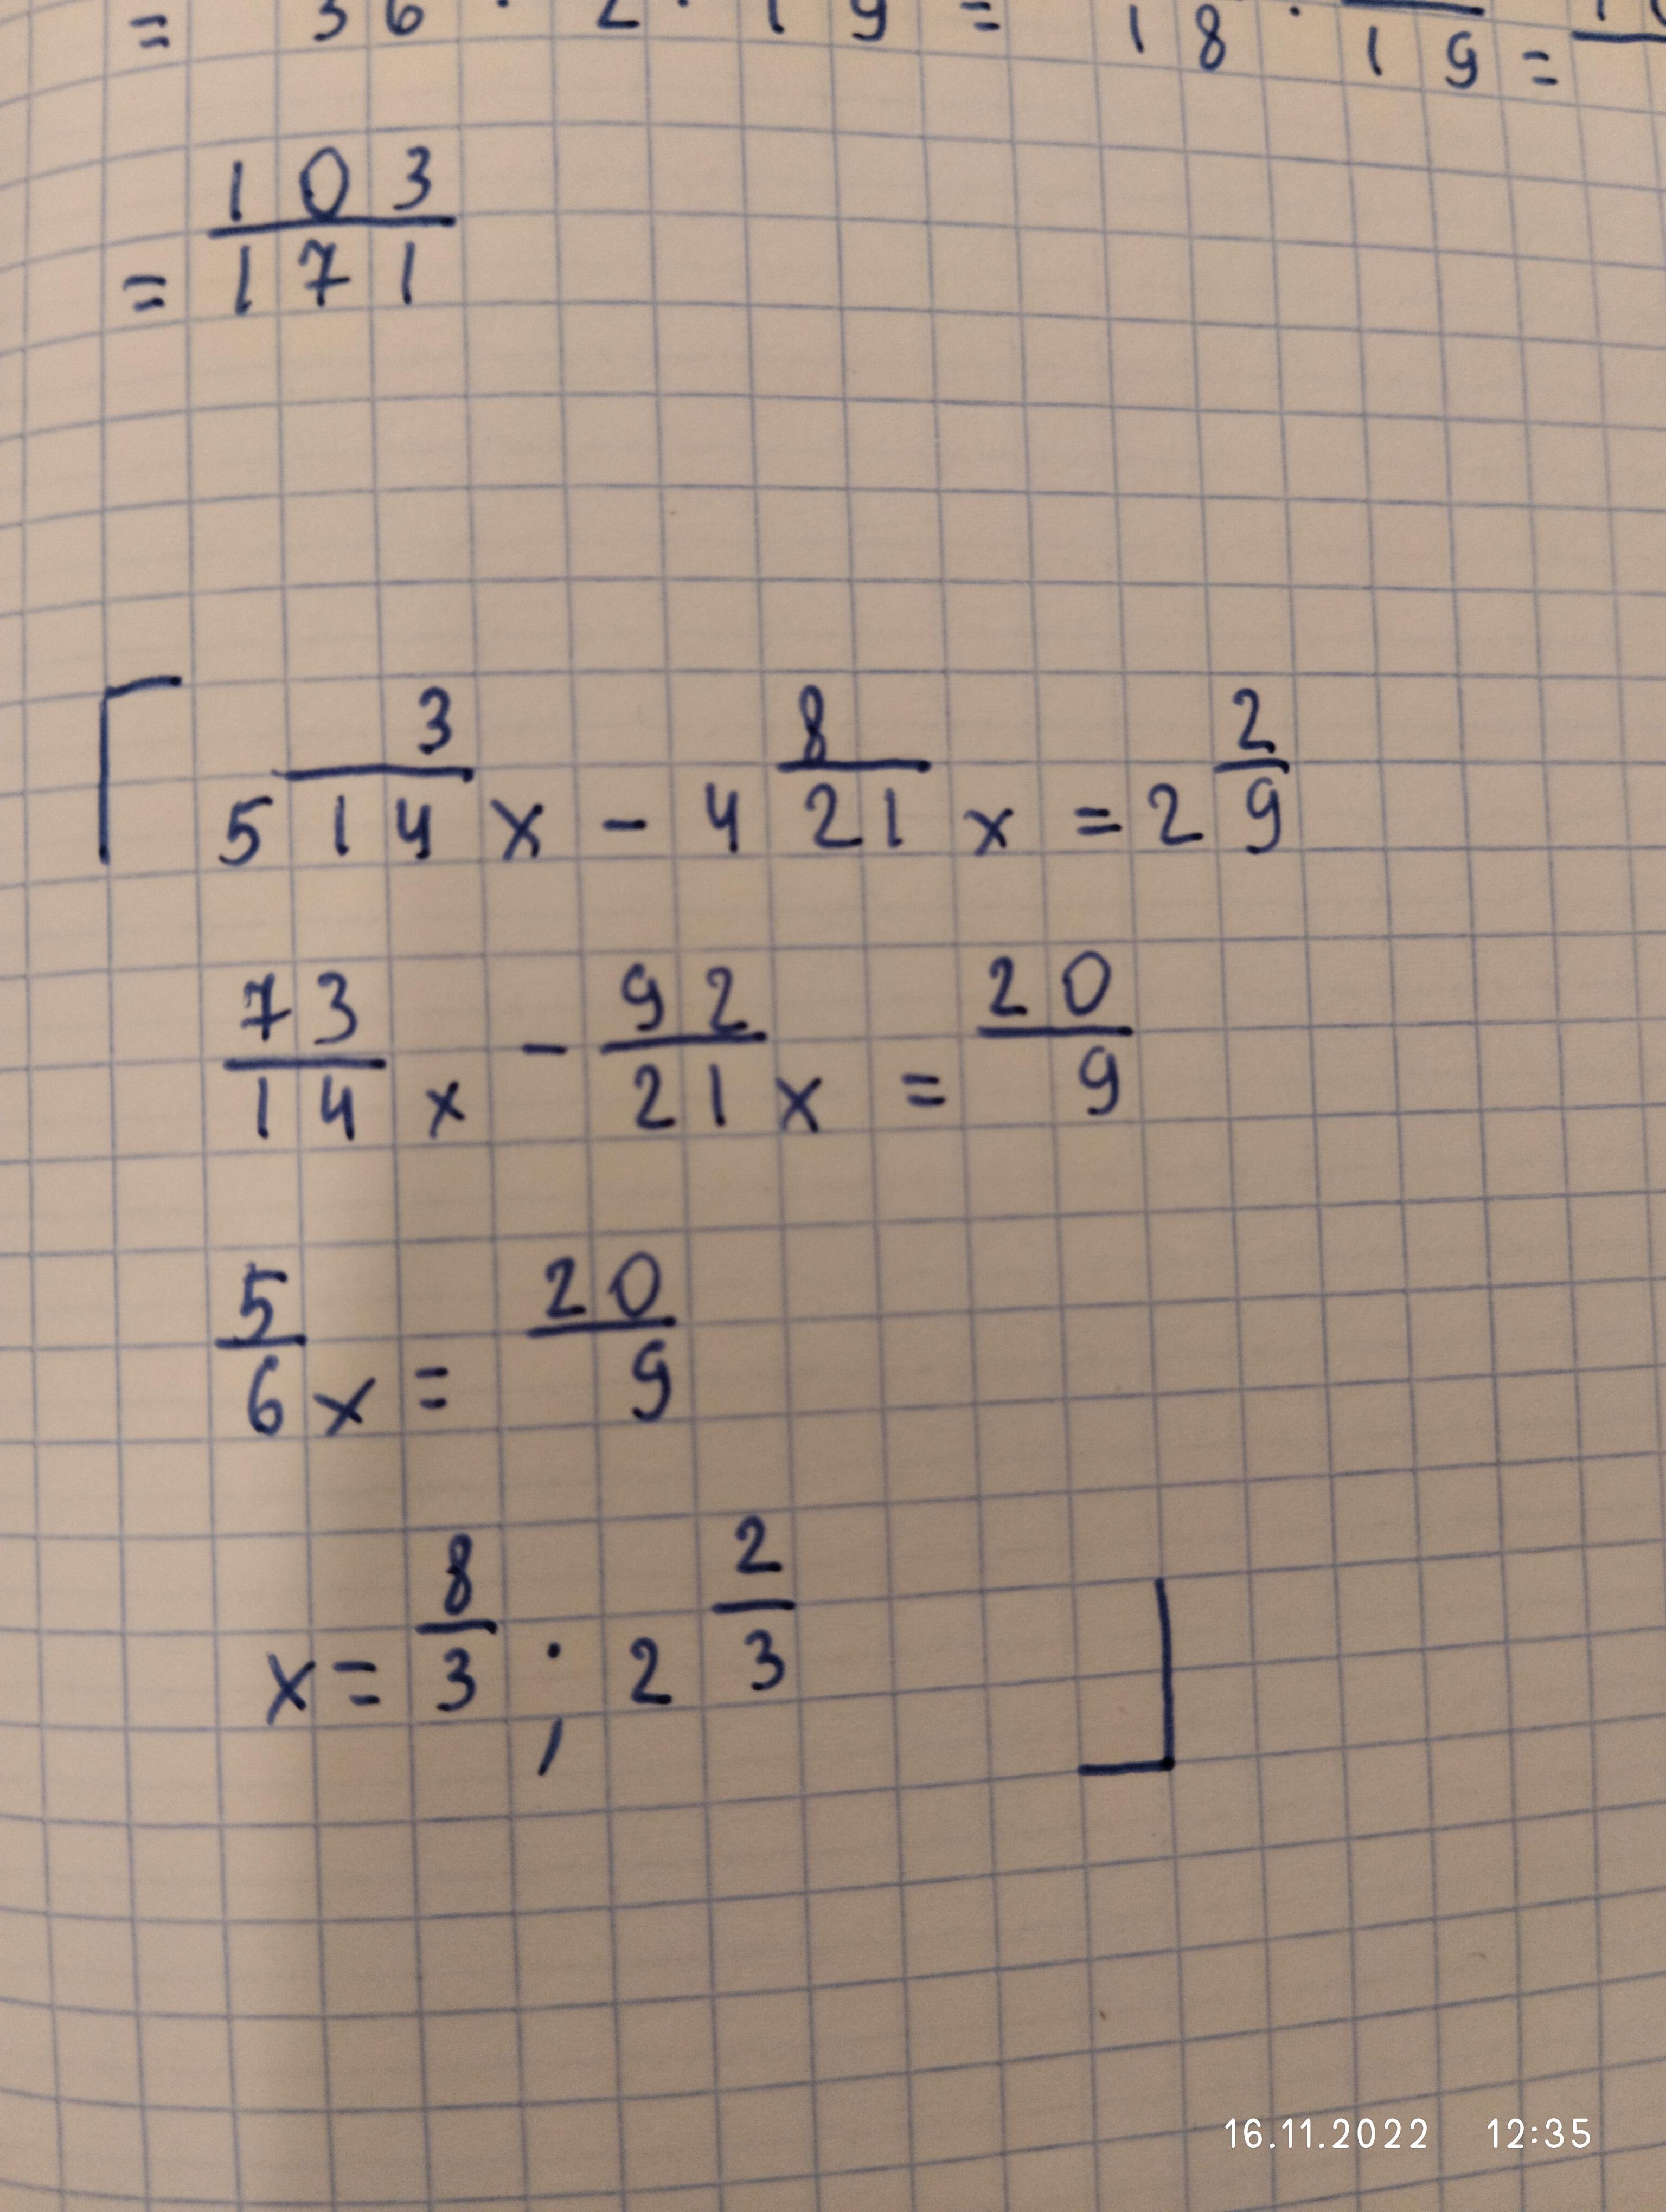 = 36 · 2 · 19 = 18 · 19 =
= 103/171
5 3/14 x - 4 8/21 x = 2 2/9
73/14 x - 92/21 x = 20/9
5/6 x = 20/9
x = 8/3 ; 2 2/3
16.11.2022 12:35